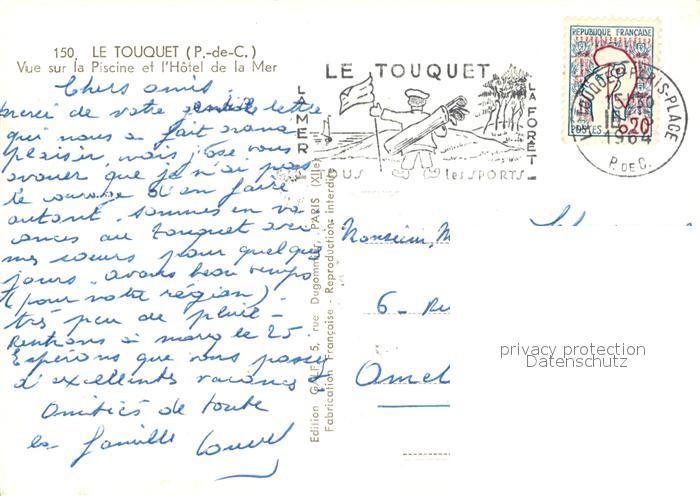 150. LE TOUQUET (P.-de-C.)
Vue sur la Piscine et l'Hôtel de la Mer
Chers amis
merci de votre gentille lettre
qui nous a fait grand
plaisir, mais j'ose vous
avouer que je n'ai pas
le courage d'en faire
autant. Sommes en va
cances au Touquet avec
mes soeurs pour quelques
jours. avons beau temps
(pour notre région)-
très peu de pluie-
Rentrons à marcq le 25
Espérons que vous passez
d'excellentes vacances
Amitiés de toute
la famille
LE TOUQUET
LA MER
LA FORET
TOUS les SPORTS
REPUBLIQUE FRANÇAISE
POSTES 0,20
LE TOUQUET-PARIS-PLAGE
1964
P. DE C.
Edition GAI-F, 5, rue Dugommier, PARIS (XIIe)
Fabrication Française - Reproductions interdites
Monsieur, M
6 - Ru
Amel
privacy protection
Datenschutz